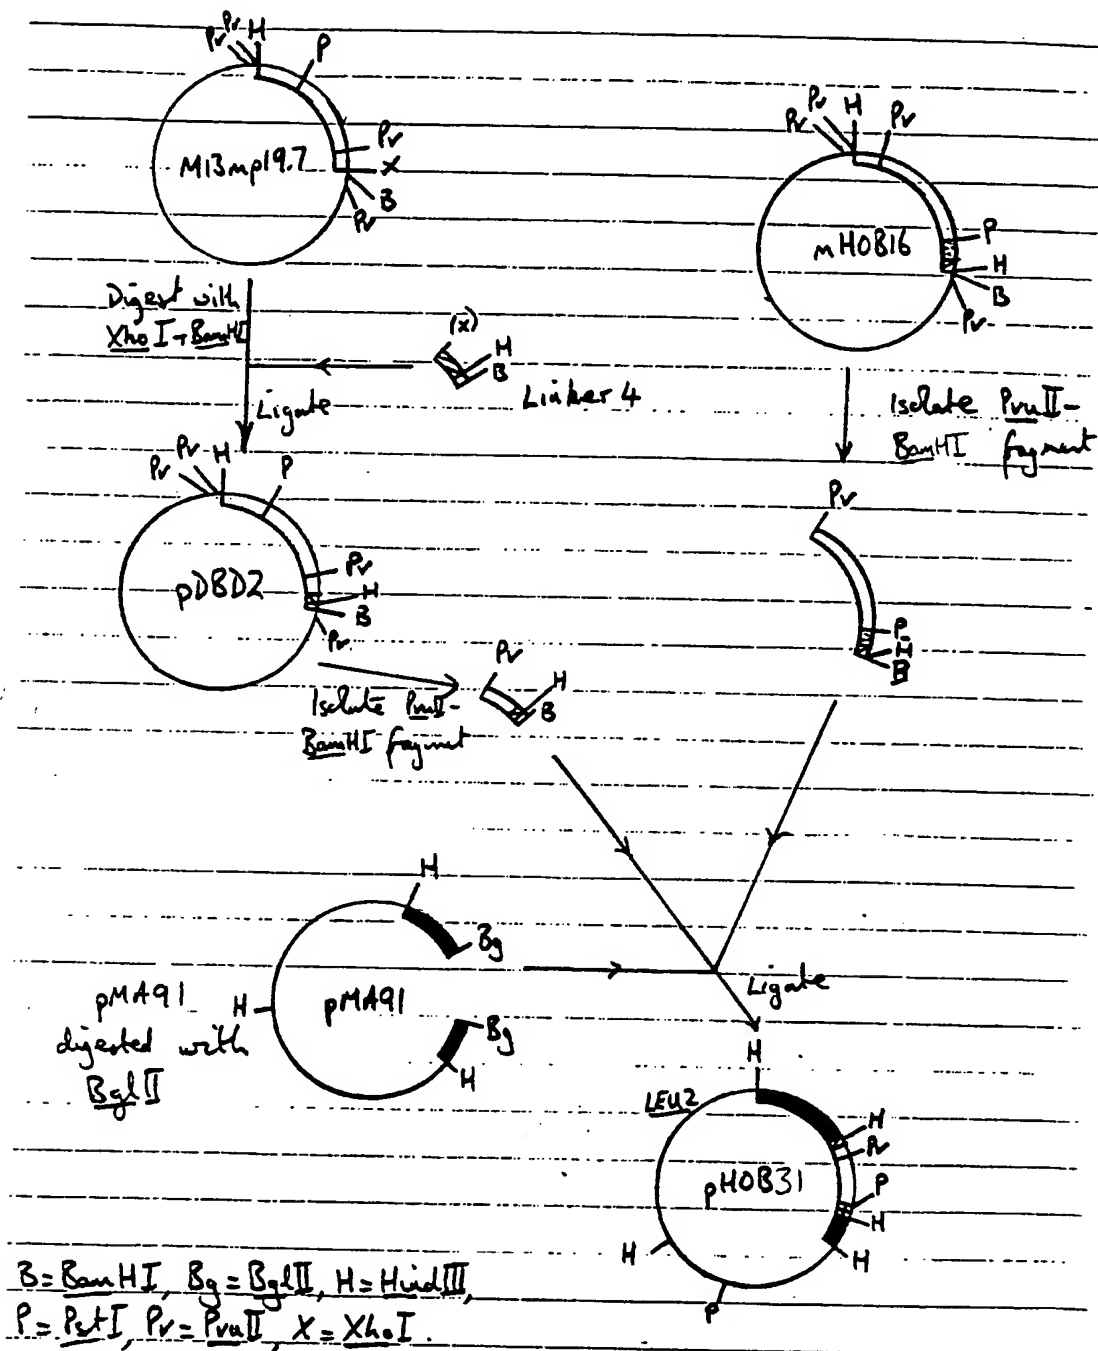 Pv Pv H
P
M13mp19.7
Pv
X
B
Pv
Pv Pv H Pv
mHOB16
P
H
B
Pv
Digest with
XhoI + BamHI
(X)
H
B
Linker 4
Ligate
Isolate PvuII-
BamHI fragment
Pv Pv H P
pDBD2
Pv
H
B
Pv
Pv
P
H
B
Isolate PvuII-
BamHI fragment
Pv
H
B
H
Bg
pMA91
digested with
BglII
H
pMA91
Bg
H
Ligate
H
LEU2
H
Pv
pHOB31
P
H
H
H
P
B = BamHI, Bg = BglII, H = HindIII,
P = PstI, Pv = PvuII, X = XhoI.